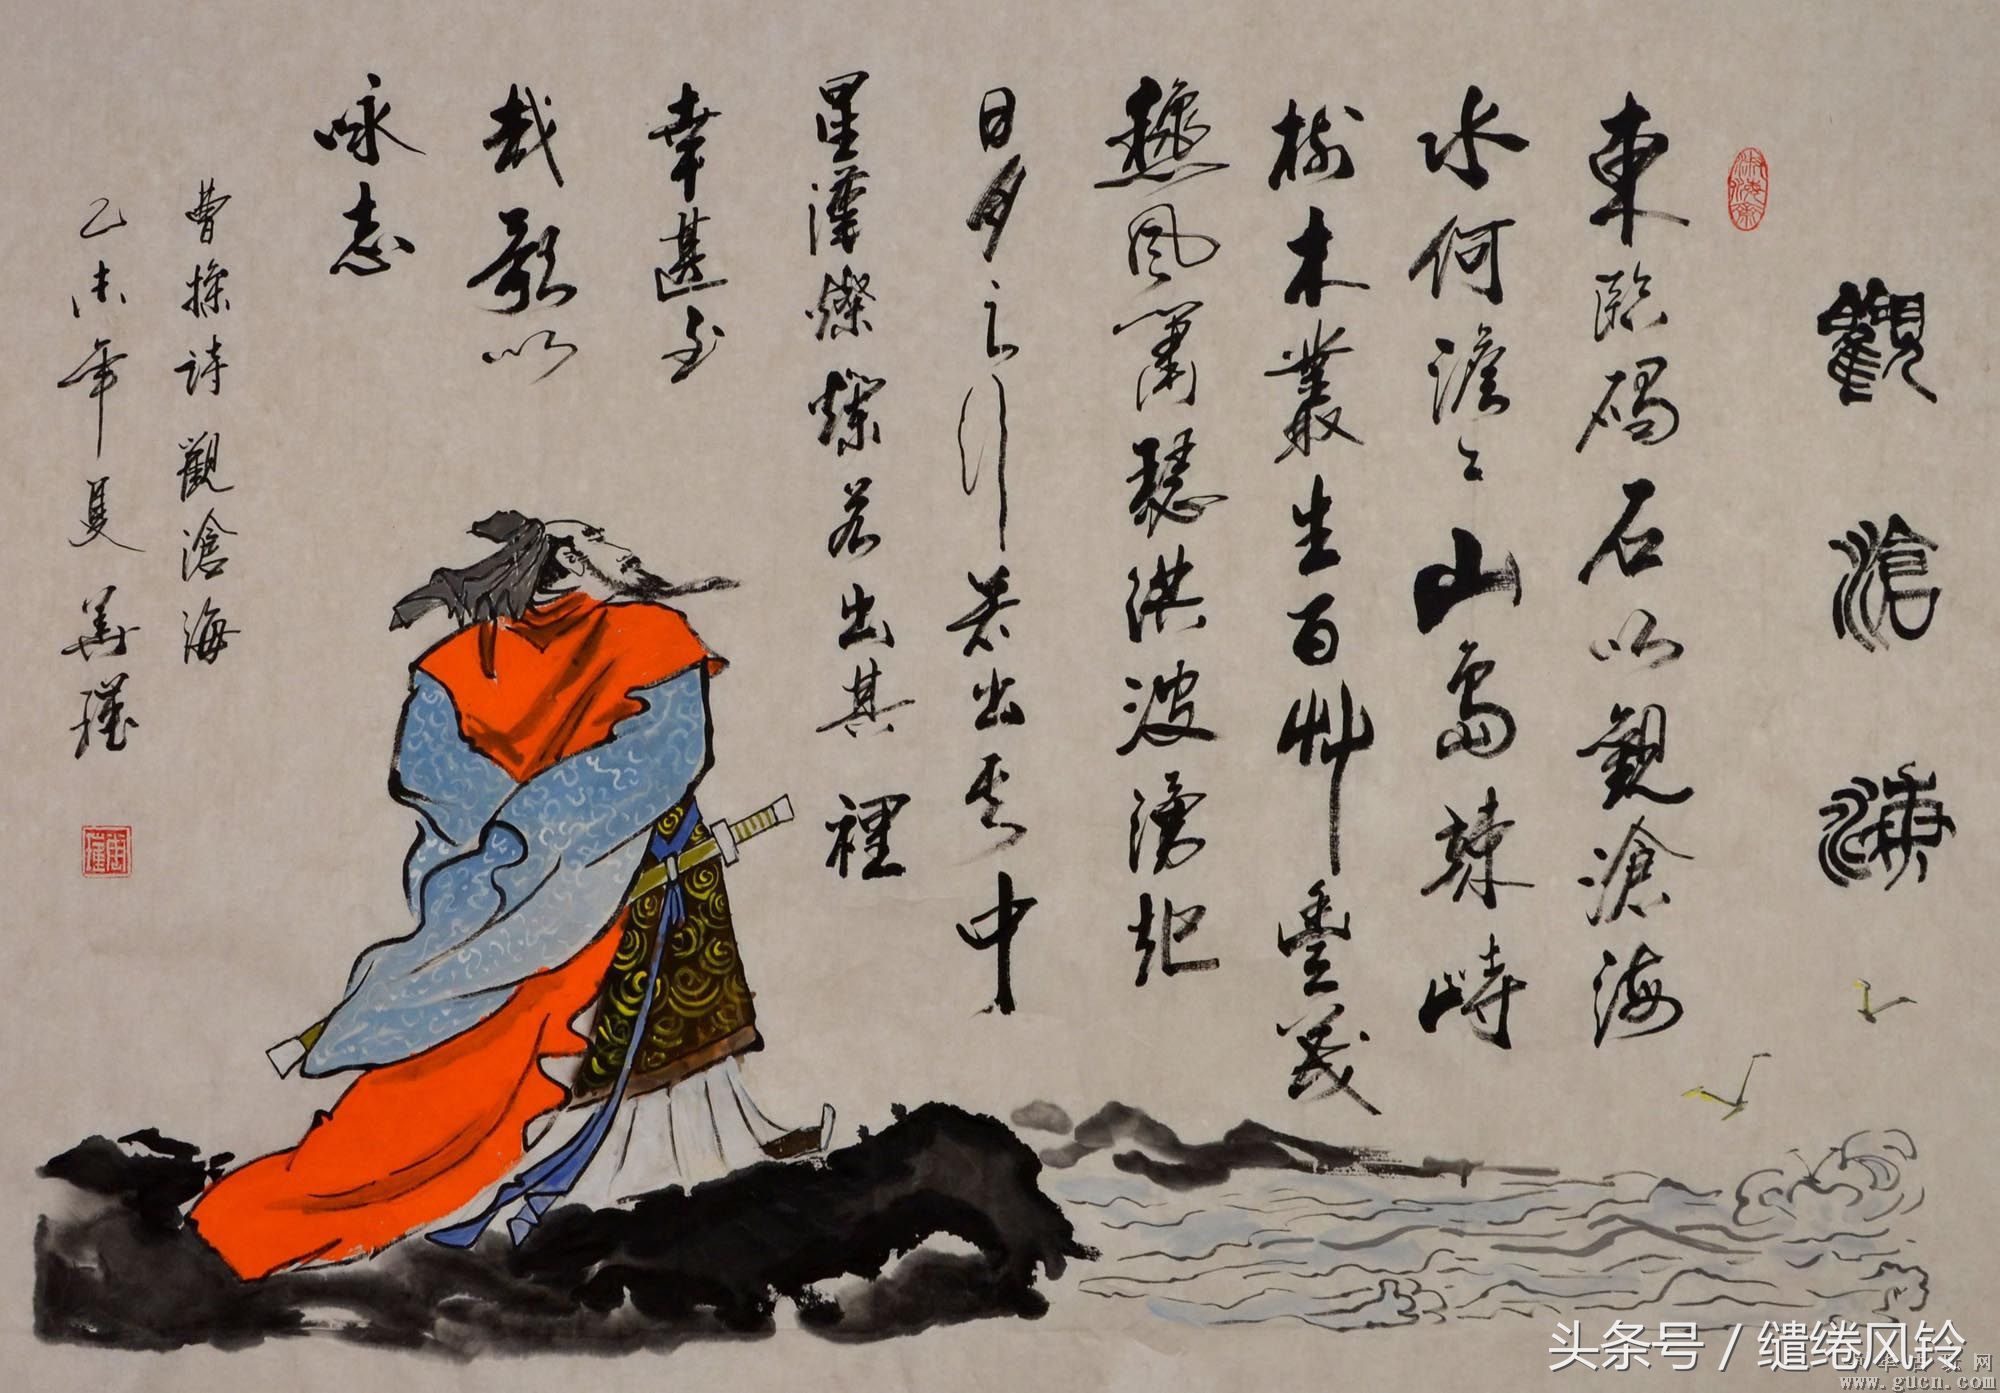 觀滄海
東臨碣石以觀滄海
水何澹々山島竦峙
樹木叢生百艸豐茂
穐風蕭瑟洪波湧起
日月之行若出其中
星漢燦爛若出其裡
幸甚至
哉歌以
咏志
曹操詩觀滄海
乙未年夏
头条号／缱绻风铃
www.gucn.com